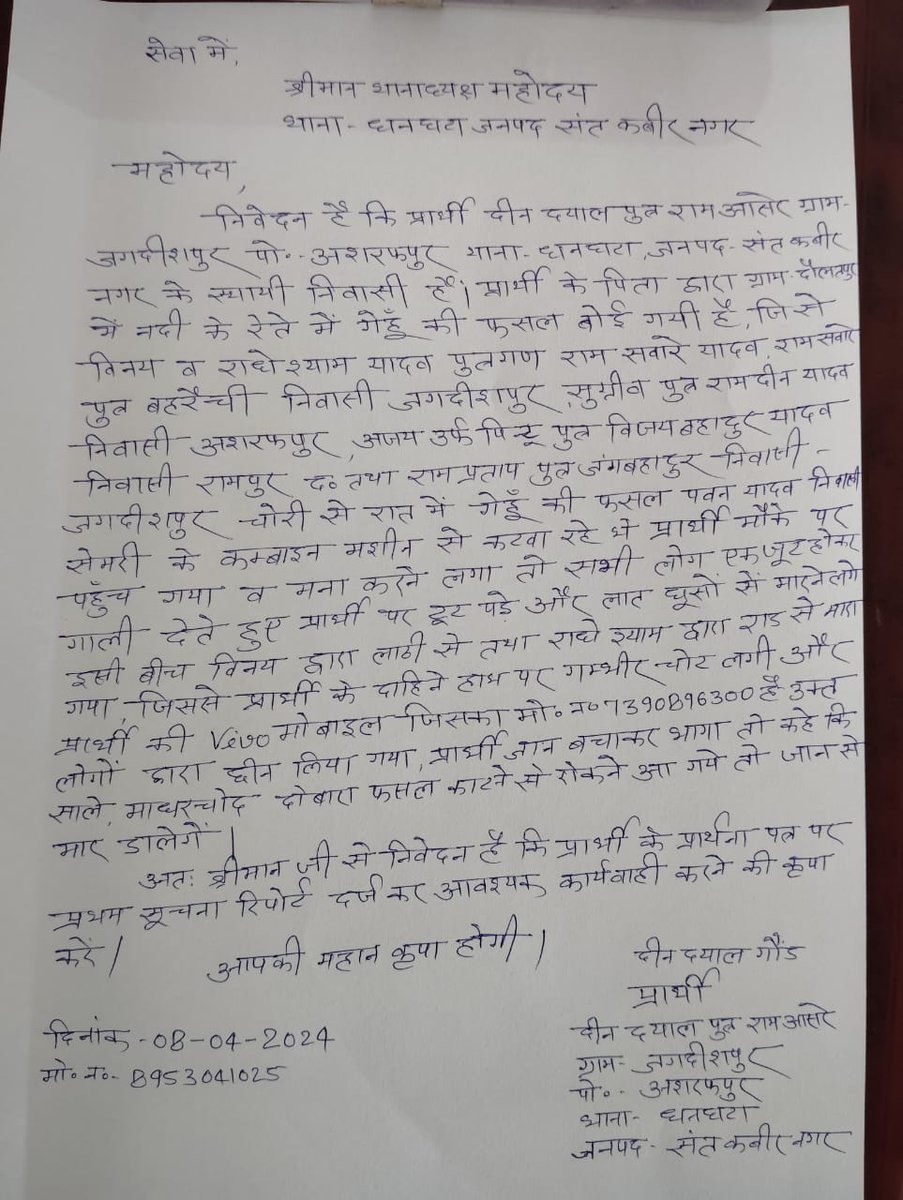 सेवा में,
श्रीमान थानाध्यक्ष महोदय
थाना - धनघटा जनपद संत कबीर नगर
महोदय,
निवेदन है कि प्रार्थी दीन दयाल पुत्र राम आसरे ग्राम-
जगदीशपुर पो०-अशरफपुर थाना-धनघटा, जनपद-संत कबीर
नगर के स्थायी निवासी हैं। प्रार्थी के पिता द्वारा ग्राम-दौलतपुर
में नदी के रेते में गेहूँ की फसल बोई गयी है, जिसे
विनय व राधेश्याम यादव पुत्रगण राम सवारे यादव, राम सवारे
पुत्र बहरैची निवासी जगदीशपुर, सुग्रीव पुत्र रामदीन यादव
निवासी अशरफपुर, अजय उर्फ पिन्टू पुत्र विजय बहादुर यादव
निवासी रामपुर द० तथा राम प्रताप पुत्र जंगबहादुर निवासी -
जगदीशपुर चोरी से रात में गेहूँ की फसल पवन यादव निवासी
सेमरी के कम्बाइन मशीन से कटवा रहे थे प्रार्थी मौके पर
पहुँच गया व मना करने लगा तो सभी लोग एकजूट होकर
गाली देते हुए प्रार्थी पर टूट पड़े और लात घूसों से मारने लगे
इसी बीच विनय द्वारा लाठी से तथा राधे श्याम द्वारा राड से मारा
गया, जिससे प्रार्थी के दाहिने हाथ पर गम्भीर चोट लगी और
प्रार्थी की Vivo मोबाइल जिसका मो० न० 7390896300 है उक्त
लोगों द्वारा छीन लिया गया, प्रार्थी जान बचाकर भागा तो कहे कि
साले, माधरचोद दोबारा फसल काटने से रोकने आ गये तो जान से
मार डालेगें।
अतः श्रीमान जी से निवेदन है कि प्रार्थी के प्रार्थना पत्र पर
प्रथम सूचना रिपोर्ट दर्ज कर आवश्यक कार्यवाही करने की कृपा
करें।
आपकी महान कृपा होगी।
दीन दयाल गौंड
प्रार्थी
दीन दयाल पुत्र राम आसरे
ग्राम- जगदीशपुर
पो०- अशरफपुर
थाना- धनघटा
जनपद - संत कबीर नगर
दिनांक-08-04-2024
मो० न०- 8953041025